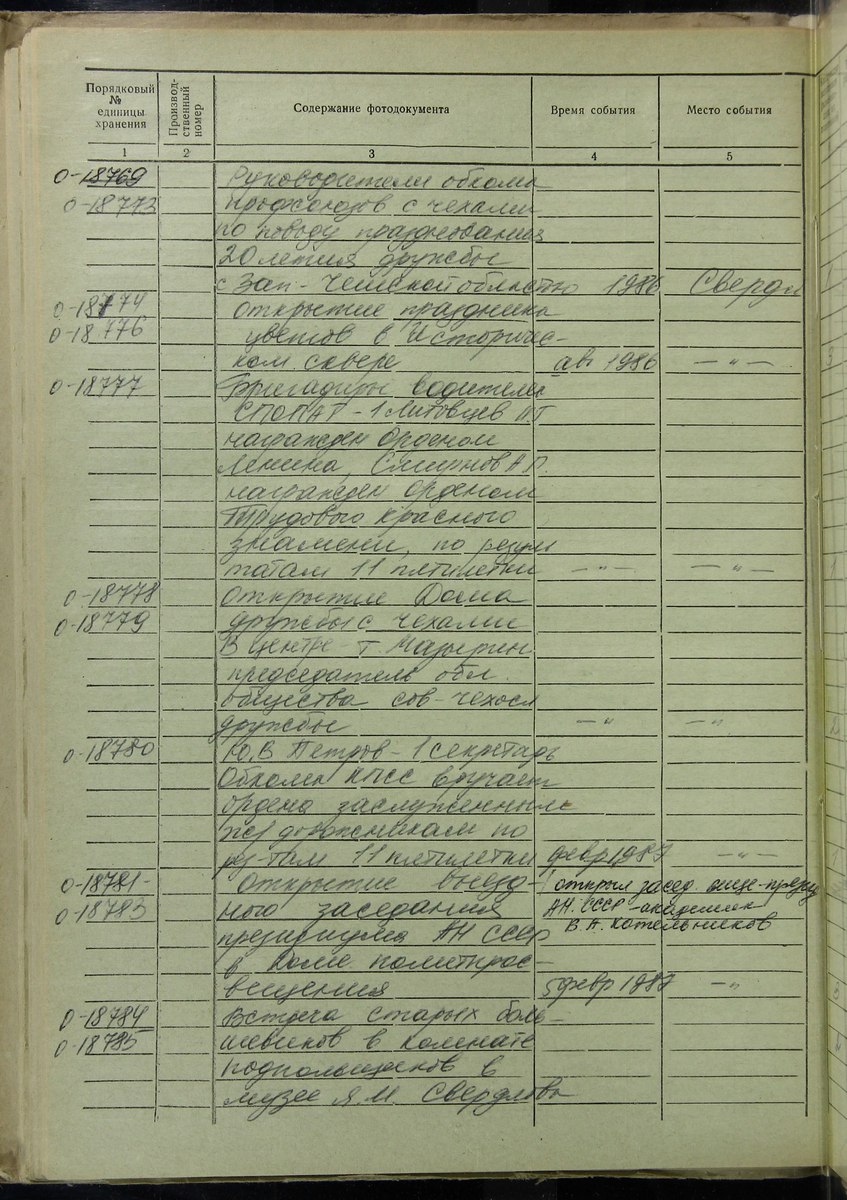 Порядковый № единицы хранения
Производ-ственный номер
Содержание фотодокумента
Время события
Место события
1 2 3 4 5
0-18769 Руководители обкома
0-18773 профсоюзов с чехами
по поводу празднования
20 летия дружбы
с Зап-Чешской областью 1986 Свердл
0-18774 Открытие праздника
0-18776 цветов в Историчес-
ком сквере авг 1986 — " —
0-18777 Бригадиры водителей
СПОПАТ-1 Литовцев
награжден Орденом
Ленина, Смирнов А.П.
награжден Орденом
Трудового Красного
знамени, по резуль
татам 11 пятилетки — " — — " —
0-18778 Открытие Дома
0-18779 дружбы с чехами
В центре - т. Мазырин
председатель обл.
общества сов-чехосл
дружбы — " — — " —
0-18780 Ю.В Петров - 1 секретарь
Обкома КПСС вручает
ордена заслуженным
ж/дорожникам по
рез-там 11 пятилетки февр 1987 — " —
0-18781- Открытие выезд- открыл засед. вице-презид
0-18783 ного заседания АН. СССР - академик
президиума АН СССР В.А. Котельников
в Доме политпрос-
вещения 5 февр 1987 — " —
0-18784 Встреча старых боль-
0-18785 шевиков в комнате
подпольщиков в
музее Я.М. Свердлова